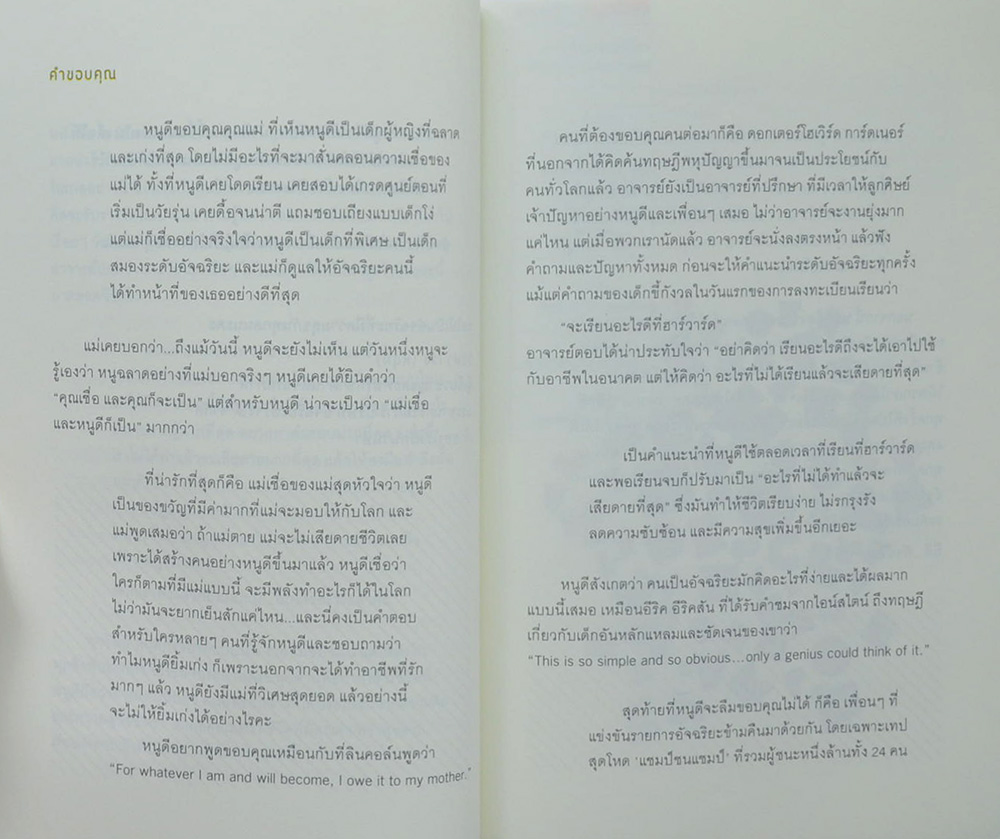 คำขอบคุณ
หนูดีขอบคุณคุณแม่ ที่เห็นหนูดีเป็นเด็กผู้หญิงที่ฉลาด
และเก่งที่สุด โดยไม่มีอะไรที่จะมาสั่นคลอนความเชื่อของ
แม่ได้ ทั้งที่หนูดีเคยโดดเรียน เคยสอบได้เกรดศูนย์ตอนที่
เริ่มเป็นวัยรุ่น เคยดื้อจนน่าตี แถมชอบเถียงแบบเด็กโง่
แต่แม่ก็เชื่ออย่างจริงใจว่าหนูดีเป็นเด็กที่พิเศษ เป็นเด็ก
สมองระดับอัจฉริยะ และแม่ก็ดูแลให้อัจฉริยะคนนี้
ได้ทำหน้าที่ของเธออย่างดีที่สุด
แม่เคยบอกว่า...ถึงแม้วันนี้ หนูดีจะยังไม่เห็น แต่วันหนึ่งหนูจะ
รู้เองว่า หนูฉลาดอย่างที่แม่บอกจริงๆ หนูดีเคยได้ยินคำว่า
“คุณเชื่อ และคุณก็จะเป็น” แต่สำหรับหนูดี น่าจะเป็นว่า “แม่เชื่อ
และหนูดีก็เป็น” มากกว่า
ที่น่ารักที่สุดก็คือ แม่เชื่อของแม่สุดหัวใจว่า หนูดี
เป็นของขวัญที่มีค่ามากที่แม่จะมอบให้กับโลก และ
แม่พูดเสมอว่า ถ้าแม่ตาย แม่จะไม่เสียดายชีวิตเลย
เพราะได้สร้างคนอย่างหนูดีขึ้นมาแล้ว หนูดีเชื่อว่า
ใครก็ตามที่มีแม่แบบนี้ จะมีพลังทำอะไรก็ได้ในโลก
ไม่ว่ามันจะยากเย็นสักแค่ไหน...และนี่คงเป็นคำตอบ
สำหรับใครหลายๆ คนที่รู้จักหนูดีและชอบถามว่า
ทำไมหนูดียิ้มเก่ง ก็เพราะนอกจากจะได้ทำอาชีพที่รัก
มากๆ แล้ว หนูดียังมีแม่ที่วิเศษสุดยอด แล้วอย่างนี้
จะไม่ให้ยิ้มเก่งได้อย่างไรคะ
หนูดีอยากพูดขอบคุณเหมือนกับที่ลินคอล์นพูดว่า
“For whatever I am and will become, I owe it to my mother.”
คนที่ต้องขอบคุณคนต่อมาก็คือ ดอกเตอร์โฮเวิร์ด การ์ดเนอร์
ที่นอกจากได้คิดค้นทฤษฎีพหุปัญญาขึ้นมาจนเป็นประโยชน์กับ
คนทั่วโลกแล้ว อาจารย์ยังเป็นอาจารย์ที่ปรึกษา ที่มีเวลาให้ลูกศิษย์
เจ้าปัญหาอย่างหนูดีและเพื่อนๆ เสมอ ไม่ว่าอาจารย์จะงานยุ่งมาก
แค่ไหน แต่เมื่อพวกเรานัดแล้ว อาจารย์จะนั่งลงตรงหน้า แล้วฟัง
คำถามและปัญหาทั้งหมด ก่อนจะให้คำแนะนำระดับอัจฉริยะทุกครั้ง
แม้แต่คำถามของเด็กขี้กังวลในวันแรกของการลงทะเบียนเรียนว่า
“จะเรียนอะไรดีที่ฮาร์วาร์ด”
อาจารย์ตอบได้น่าประทับใจว่า “อย่าคิดว่า เรียนอะไรดีถึงจะได้เอาไปใช้
กับอาชีพในอนาคต แต่ให้คิดว่า อะไรที่ไม่ได้เรียนแล้วจะเสียดายที่สุด”
เป็นคำแนะนำที่หนูดีใช้ตลอดเวลาที่เรียนที่ฮาร์วาร์ด
และพอเรียนจบก็ปรับมาเป็น “อะไรที่ไม่ได้ทำแล้วจะ
เสียดายที่สุด” ซึ่งมันทำให้ชีวิตเรียบง่าย ไม่รกรุงรัง
ลดความซับซ้อน และมีความสุขเพิ่มขึ้นอีกเยอะ
หนูดีสังเกตว่า คนเป็นอัจฉริยะมักคิดอะไรที่ง่ายและได้ผลมาก
แบบนี้เสมอ เหมือนอีริค อีริคสัน ที่ได้รับคำชมจากไอน์สไตน์ ถึงทฤษฎี
เกี่ยวกับเด็กอันหลักแหลมและชัดเจนของเขาว่า
“This is so simple and so obvious...only a genius could think of it.”
สุดท้ายที่หนูดีจะลืมขอบคุณไม่ได้ ก็คือ เพื่อนๆ ที่
แข่งขันรายการอัจฉริยะข้ามคืนมาด้วยกัน โดยเฉพาะเทป
สุดโหด ‘แชมป์ชนแชมป์’ ที่รวมผู้ชนะหนึ่งล้านทั้ง 24 คน